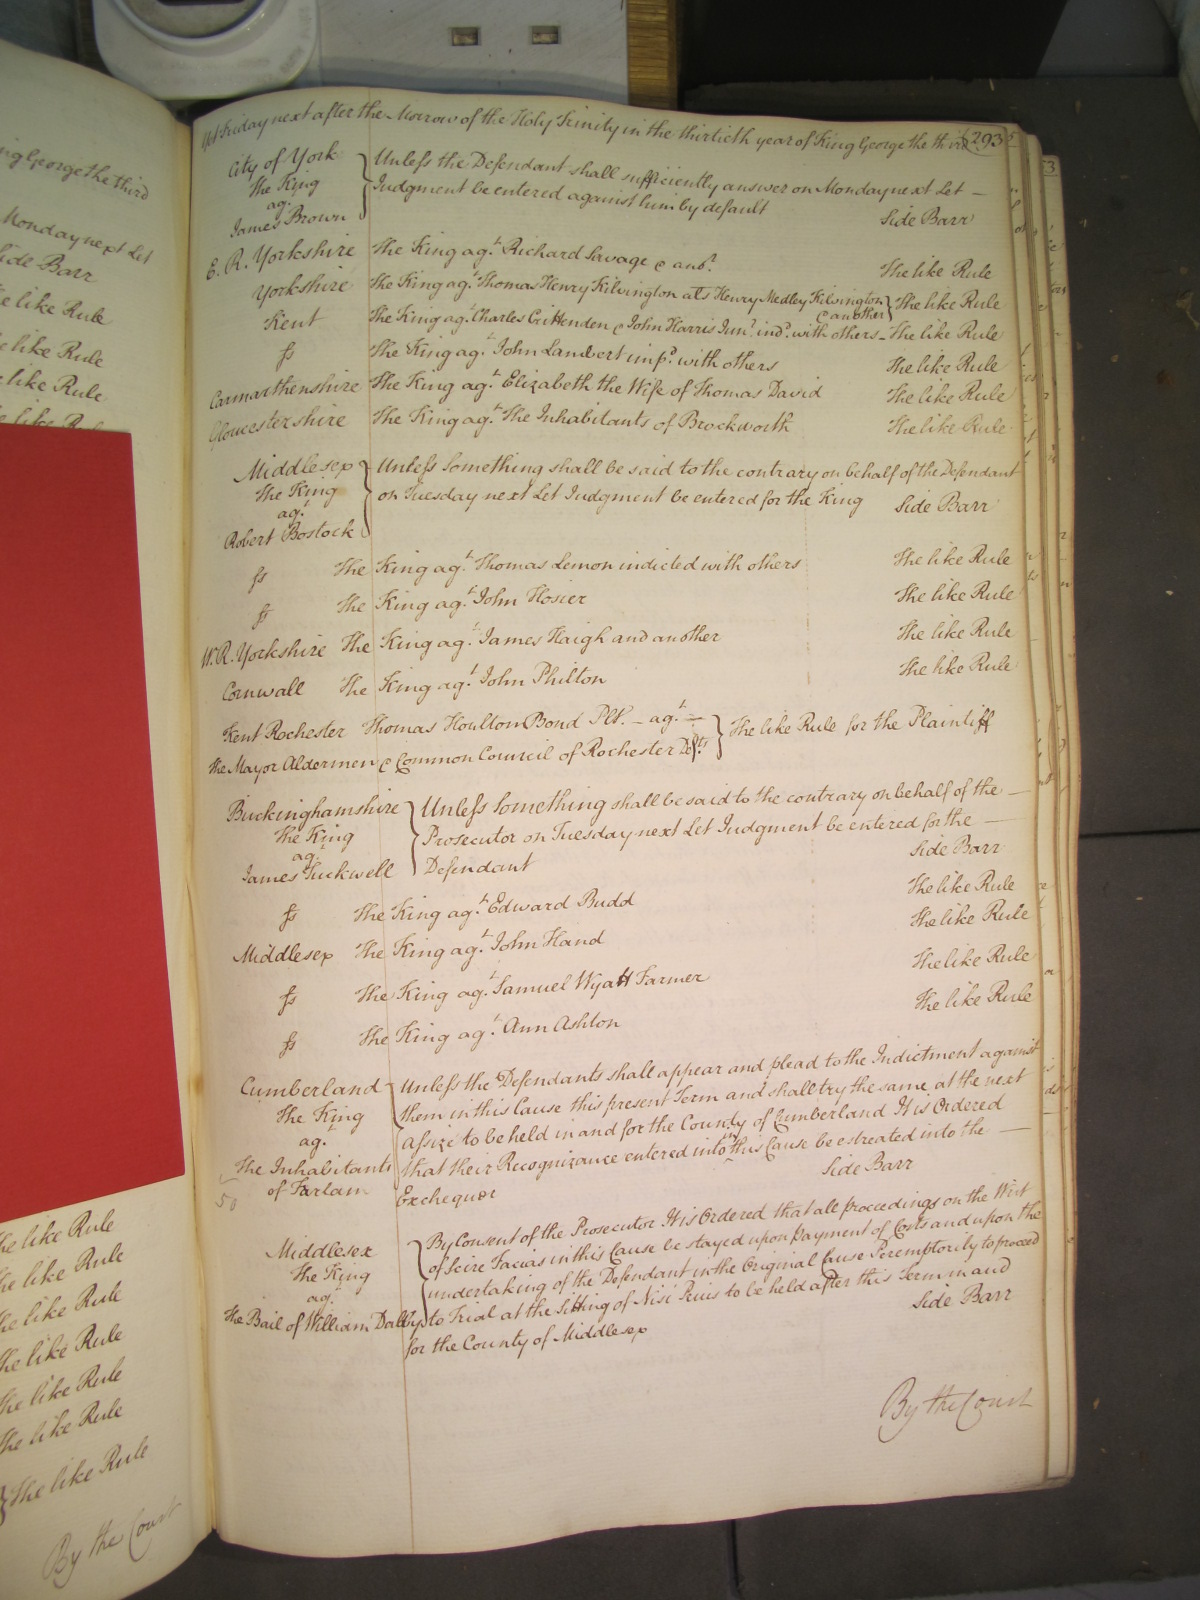 ng George the third
Monday next Let
Side Barr
The like Rule
The like Rule
The like Rule
The like Rule
The like Rule
The like Rule
The like Rule
The like Rule
The like Rule
The like Rule
The like Rule
By the Court
Yet Friday next after the Morrow of the Holy Trinity in the thirtieth year of King George the third 293
City of York
The King
agt.
James Brown
Unless the Defendant shall sufficiently answer on Monday next Let —
Judgment be entered against him by default
Side Barr
E. R. Yorkshire The King agt. Richard Savage & anor. The like Rule
Yorkshire The King agt. Thomas Henry Kilvington als Henry Medley Kilvington & another } The like Rule
Kent The King agt. Charles Crittenden & John Harris Junr. indd. with others - The like Rule
ss The King agt. John Lambert impd. with others The like Rule
Carmarthenshire The King agt. Elizabeth the Wife of Thomas David The like Rule
Gloucestershire The King agt. The Inhabitants of Brockworth The like Rule
Middlesex
The King
agt.
Robert Bostock
Unless Something shall be said to the contrary on behalf of the Defendant
on Tuesday next Let Judgment be entered for the King Side Barr
ss The King agt. Thomas Lemon indicted with others The like Rule
ss The King agt. John Hosier The like Rule
W. R. Yorkshire The King agt. James Haigh and another The like Rule
Cornwall The King agt. John Philton The like Rule
Kent Rochester Thomas Houlton Bond Plt. — agt. —
the Mayor Aldermen & Common Council of Rochester Defts. } The like Rule for the Plaintiff
Buckinghamshire
The King
agt.
James Tuckwell
Unless Something shall be said to the contrary on behalf of the —
Prosecutor on Tuesday next Let Judgment be entered for the —
Defendant Side Barr
ss The King agt. Edward Budd The like Rule
Middlesex The King agt. John Hand The like Rule
ss The King agt. Samuel Wyatt Farmer The like Rule
ss The King agt. Ann Ashton The like Rule
Cumberland
The King
agt.
The Inhabitants
of Farlam
50
Unless the Defendants shall appear and plead to the Indictment against
them in this Cause this present Term and shall try the same at the next
assize to be held in and for the County of Cumberland It is Ordered
that their Recognizance entered into in this Cause be estreated into the —
Exchequer Side Barr
Middlesex
The King
agt.
The Bail of William Dalby
By Consent of the Prosecutor It is Ordered that all proceedings on the Writ
of Scire Facias in this Cause be stayed upon payment of Costs and upon the
undertaking of the Defendant in the Original Cause Peremptorily to proceed
to Trial at the Sitting of Nisi Prius to be held after this Term in and
for the County of Middlesex Side Barr
By the Court